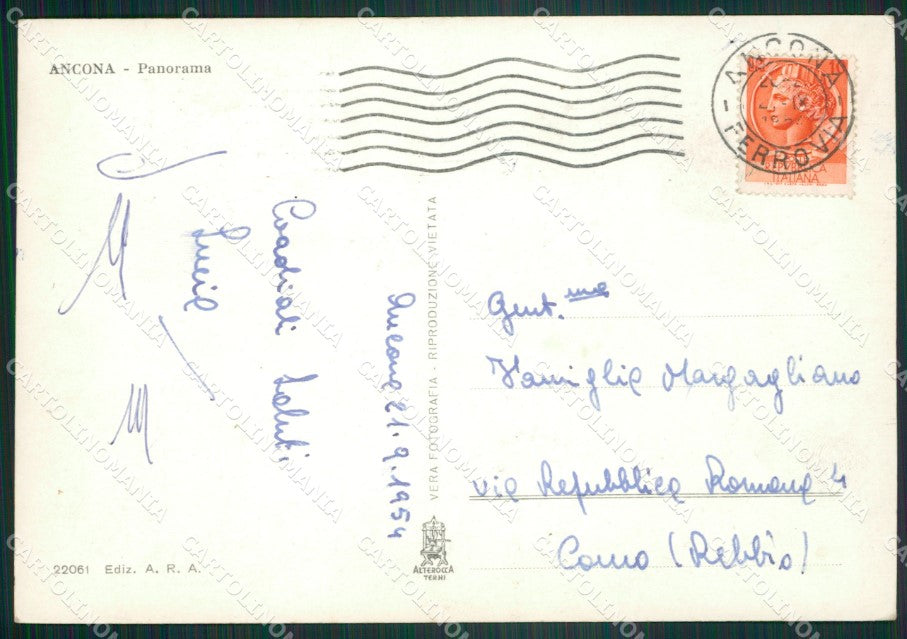 ANCONA - Panorama
ANCONA
FERROVIA
REPUBBLICA
ITALIANA
Cordiali Saluti,
Lucie
Ancona 21.9.1954
VERA FOTOGRAFIA - RIPRODUZIONE VIETATA
Gent.me
Famiglia Margagliano
via Repubblica Romana 4
Como (Rebbio)
ALTEROCCA
TERNI
22061 Ediz. A. R. A.
CARTOLINOMANIA